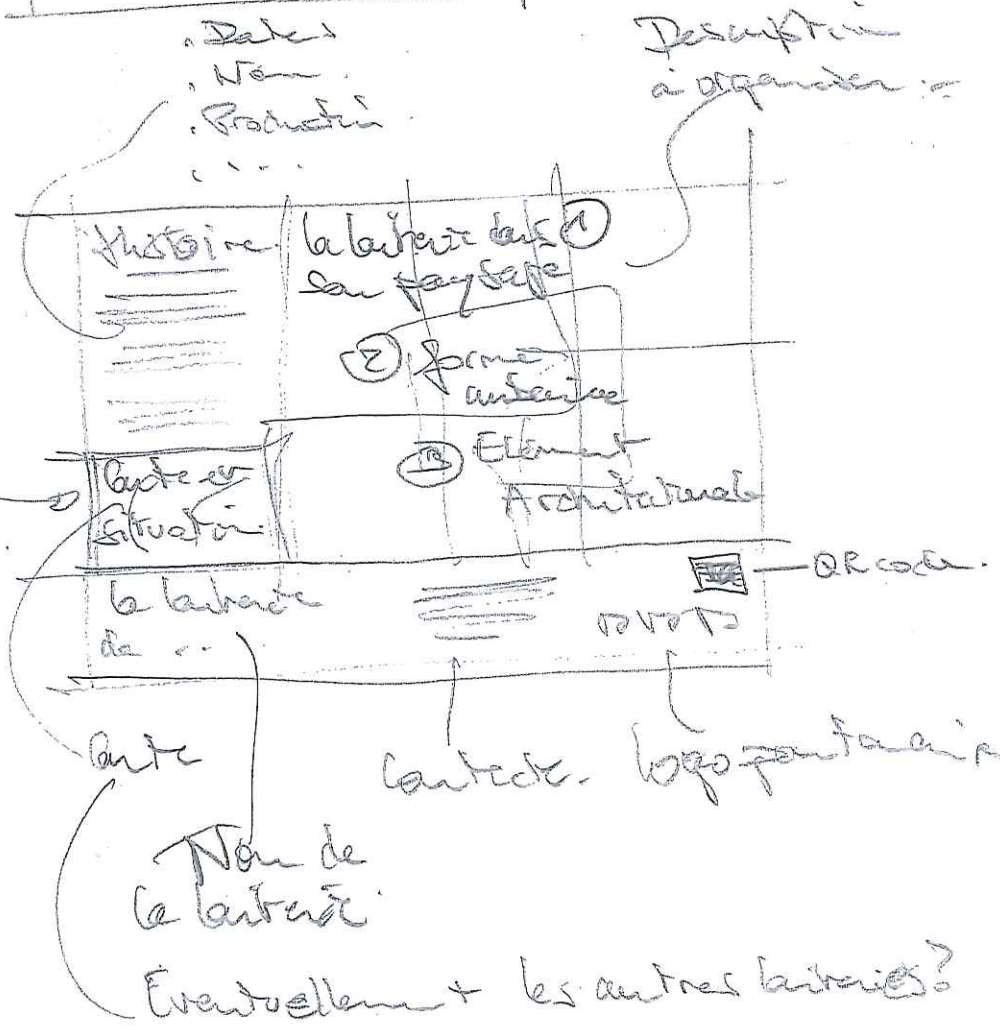 . Dates
. Nom
. Production
. . . .
Description
à organiser :
Histoire
la laiterie dans ①
son paysage
② forme
③ Element
Architecturale
Carte et
situation.
la laiterie
de ...
QR code.
Carte
Contacte.
logo partenaire
Nom de
la laiterie.
Eventuellement les autres laiteries ?